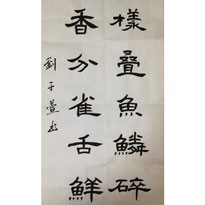 樣疊魚鱗碎
香分雀舌鮮
劉子萱書